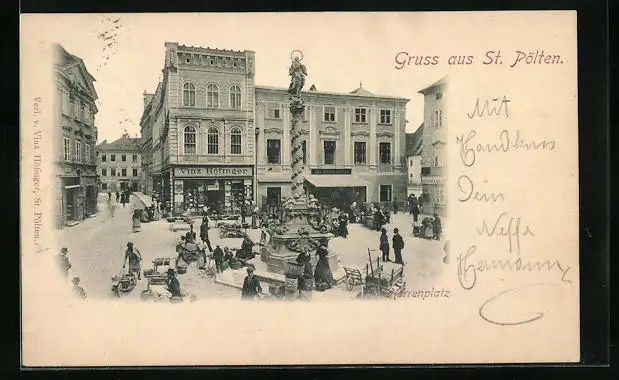 Gruss aus St. Pölten.
Verl. v. Vinz Höfinger, St. Pölten.
Vinz Höfinger
Mit
Handkuss
Dein
Neffe
Hermann
Herrenplatz.